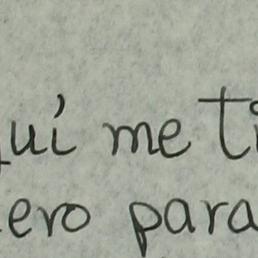 uí me ti
ero para